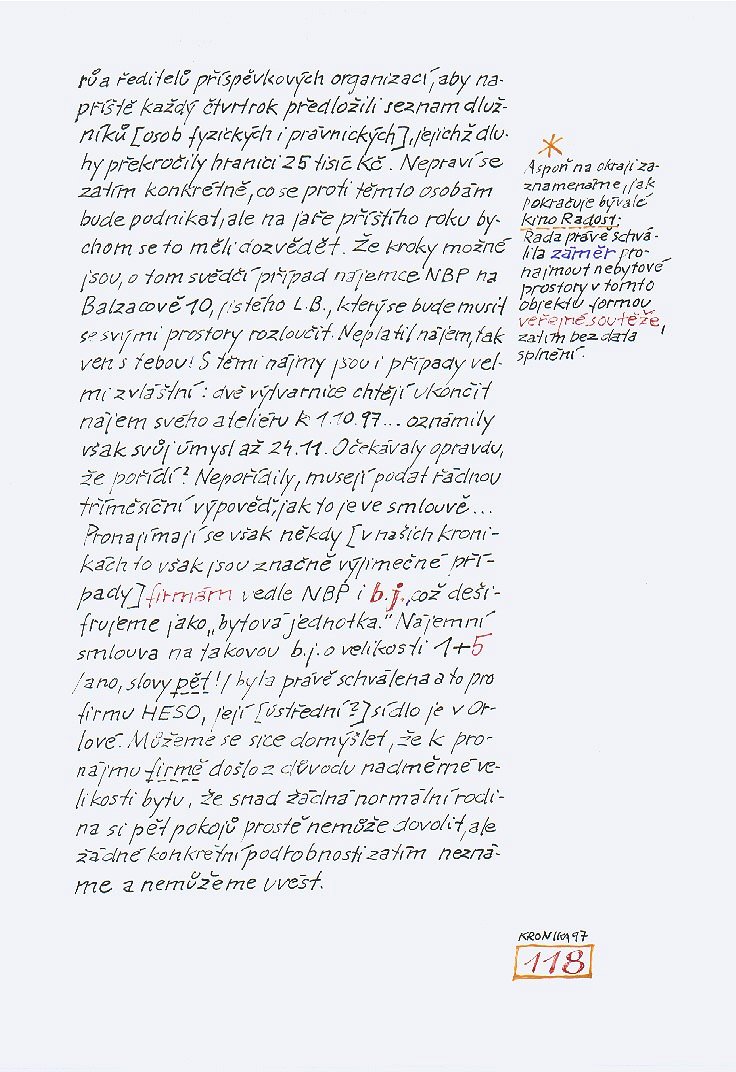 rů a ředitelů příspěvkových organizací, aby na-
příště každý čtvrtrok předložili seznam dluž-
níků [osob fyzických i právnických], jejichž dlu-
hy překročily hranici 25 tisíc Kč. Nepraví se
zatím konkrétně, co se proti těmto osobám
bude podnikat, ale na jaře příštího roku by-
chom se to měli dozvědět. Že kroky možné
jsou, o tom svědčí případ nájemce NBP na
Balzacově 10, jistého L.B., který se bude musit
se svými prostory rozloučit. Neplatil nájem, tak
ven s tebou! S těmi nájmy jsou i případy vel-
mi zvláštní: dvě výtvarnice chtějí ukončit
nájem svého ateliéru k 1.10.97... oznámily
však svůj úmysl až 24.11. Očekávaly opravdu,
že pořídí? Nepořídily, musejí podat řádnou
tříměsíční výpověď, jak to je ve smlouvě...
Pronajímají se však někdy [v našich kroni-
kách to však jsou značně výjimečné pří-
pady] firmám vedle NBP i b.j., což deši-
frujeme jako „bytová jednotka." Nájemní
smlouva na takovou b.j. o velikosti 1+5
/ano, slovy pět!/ byla právě schválena a to pro
firmu HESO, její [ústřední?] sídlo je v Or-
lové. Můžeme se sice domýšlet, že k pro-
nájmu firmě došlo z důvodu nadměrné ve-
likosti bytu, že snad žádná normální rodi-
na si pět pokojů prostě nemůže dovolit, ale
žádné konkrétní podrobnosti zatím nezná-
me a nemůžeme uvést.
*
Aspoň na okraji za-
znamenáme, jak
pokračuje bývalé
kino Radost:
Rada právě schvá-
lila záměr pro-
najmout nebytové
prostory v tomto
objektu formou
veřejné soutěže,
zatím bez data
splnění.
KRONIKA 97
118